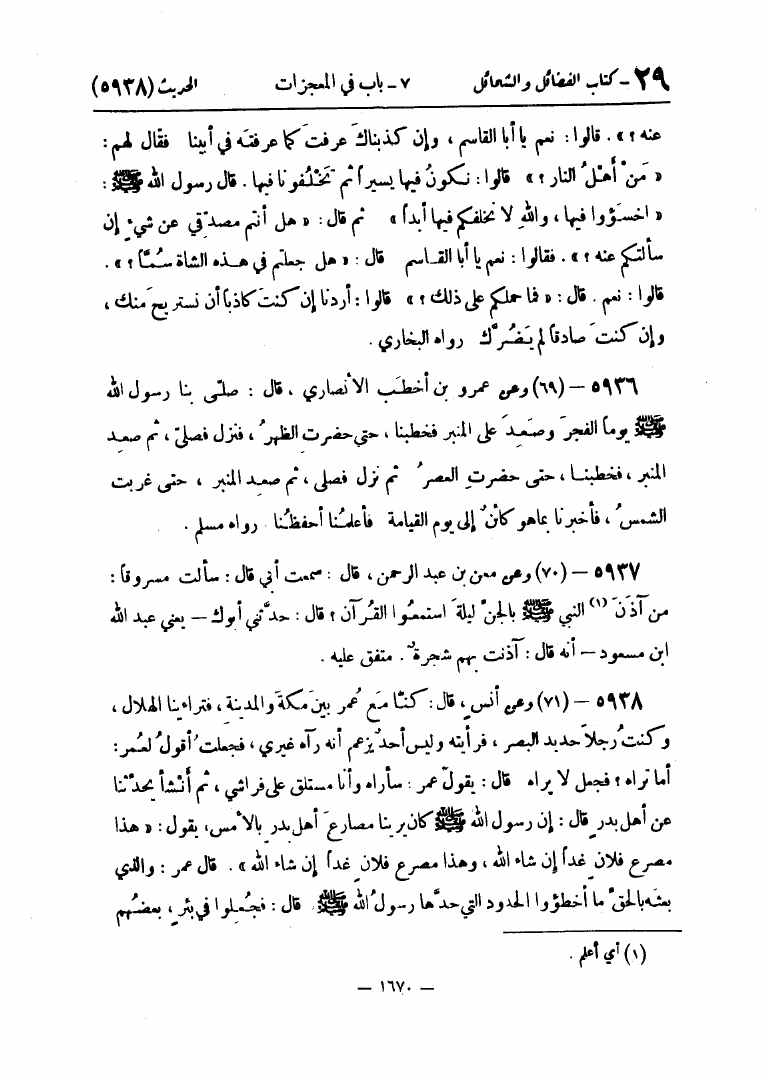 ٢٩ - كتاب الفضائل والشمائل ٧ - باب في المعجزات الحديث (٥٩٣٨)
عنه؟». قالوا: نعم يا أبا القاسم، وإن كذبناكَ عرفتَ كما عرفتَه في أبينا فقال لهم:
«مَنْ أهْلُ النار؟» قالوا: نكونُ فيها يسيراً ثم تَخْلُفونا فيها. قال رسول الله ﷺ:
«اخسَؤوا فيها، واللهِ لا نخلفكم فيها أبداً» ثم قال: «هل أنتم مصدّقي عن شيءٍ إن
سألتكم عنه؟». فقالوا: نعم يا أبا القاسم قال: «هل جعلتم في هذه الشاة سُمّاً؟».
قالوا: نعم. قال: «فما حملكم على ذلك؟» قالوا: أردنا إن كنتَ كاذباً أن نستريحَ منك،
وإن كنتَ صادقاً لم يَضُرَّك رواه البخاري.
٥٩٣٦ – (٦٩) وعن عمرو بن أخطَب الأنصاري، قال: صلّى بنا رسول الله
ﷺ يوماً الفجرَ وصَعِدَ على المنبر فخطبنا، حتى حضرت الظهرُ، فنزل فصلىّ، ثم صعِد
المنبر، فخطبنا، حتى حضرتِ العصرُ ثم نزل فصلى، ثم صعِد المنبر، حتى غربت
الشمسُ، فأخبرنا بماهو كائنٌ إلى يوم القيامة فأعلمُنا أحفظُنا رواه مسلم.
٥٩٣٧ – (٧٠) وعن معن بن عبد الرحمن، قال: سمعت أبي قال: سألت مسروقاً:
من آذَنَ (١) النبي ﷺ بالجنِّ ليلةَ استمعُوا القُرآن؟ قال: حدَّثني أبوك – يعني عبد الله
ابن مسعود – أنه قال: آذنت بهم شجرةٌ. متفق عليه.
٥٩٣٨ – (٧١) وعن أنسٍ، قال: كنّا مَعَ عُمر بينَ مكةَ والمدينة، فتراءينا الهلال،
وكنتُ رجلاً حديد البصر، فرأيته وليس أحدٌ يزعم أنه رآه غيري، فجعلتُ أقولُ لعُمر:
أما تراه؟ فجعل لا يراه قال: يقول عمر: سأراه وأنا مستلق على فراشي، ثم أَنْشأ يحدّثنا
عن أهل بدرٍ قال: إن رسول الله ﷺ كان يرينا مصارعَ أهل بدر بالأمس، يقول: «هذا
مصرع فلانٍ غداً إن شاء الله، وهذا مصرع فلانٍ غداً إن شاء الله». قال عمر: والذي
بعثه بالحقِّ ما أخطؤوا الحدود التي حدَّها رسولُ الله ﷺ قال: فجُعِلوا في بئرٍ، بعضُهم
(١) أي أعلم.
– ١٦٧٠ –